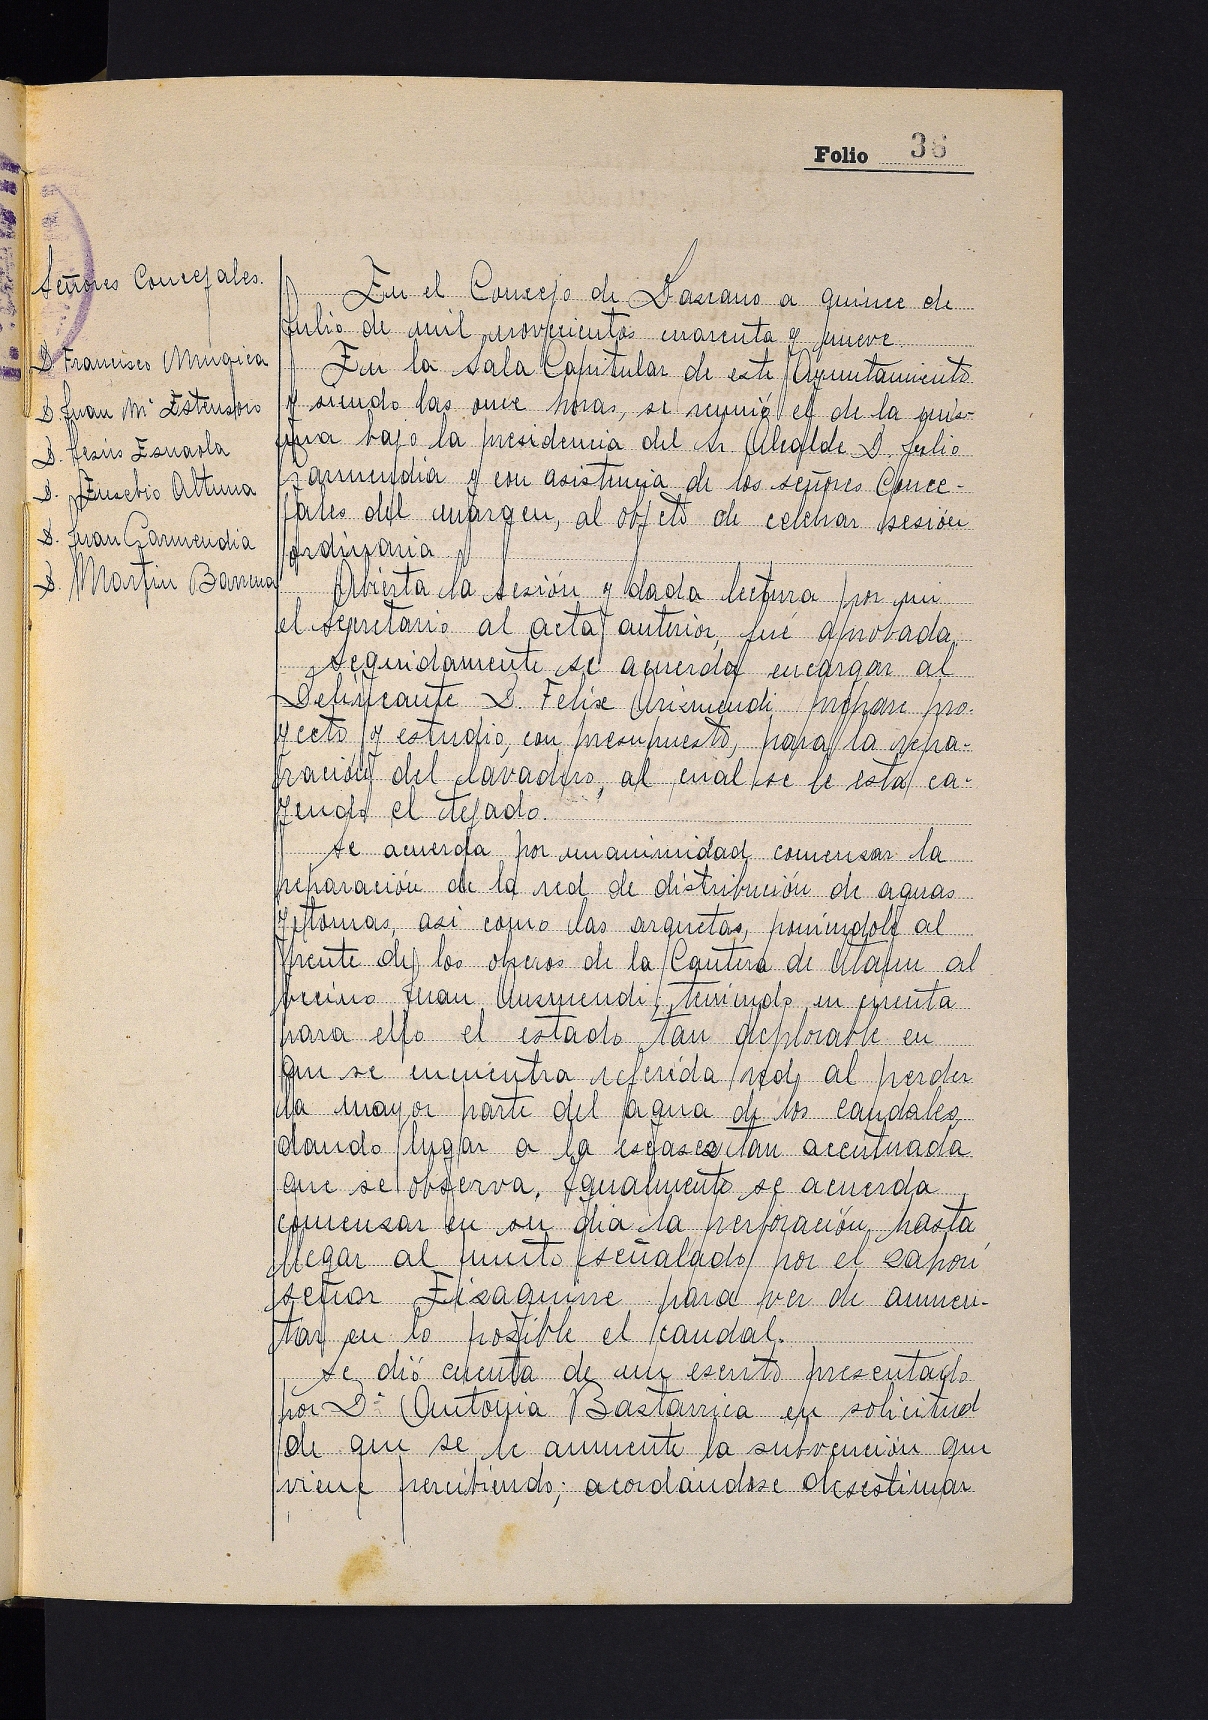 Folio 36
Señores Concejales.
D. Francisco Mugica
D. Juan Mª Estensoro
D. Jesús Esnaola
D. Eusebio Altuna
D. Juan Garmendia
D. Martin Barrena
En el Concejo de Lazcano a quince de
Julio de mil novecientos cuarenta y nueve.
En la Sala Capitular de este Ayuntamiento
y siendo las once horas, se reunió el de la mis-
ma bajo la presidencia del Sr. Alcalde D. Julio
Garmendia y con asistencia de los señores Conce-
jales del margen, al objeto de celebrar sesión
ordinaria
Abierta la sesión y dada lectura por mi
el Secretario al acta anterior, fué aprobada.
Seguidamente se acuerda encargar al
Delineante D. Felix Arizmendi prepare pro-
yecto y estudio, con presupuesto, para la repa-
ración del lavadero, al cual se le está ca-
yendo el tejado.
Se acuerda por unanimidad comenzar la
reparación de la red de distribución de aguas
y tomas, asi como las arquetas, poniéndole al
frente de los obreros de la Cantera de Ataun al
vecino Juan Auzmendi, teniendo en cuenta
para ello el estado tan deplorable en
que se encuentra referida red, al perder
la mayor parte del agua de los caudales,
dando lugar a la escasez tan acentuada
que se observa. Igualmente se acuerda
comenzar en su dia la perforación, hasta
llegar al punto señalado por el zahorí
señor Eizaguirre para ver de aumen-
tar en lo posible el caudal.
Se dió cuenta de un escrito presentado
por Dª Antonia Bastarrica en solicitud
de que se le aumente la subvención que
viene percibiendo; acordándose desestimar